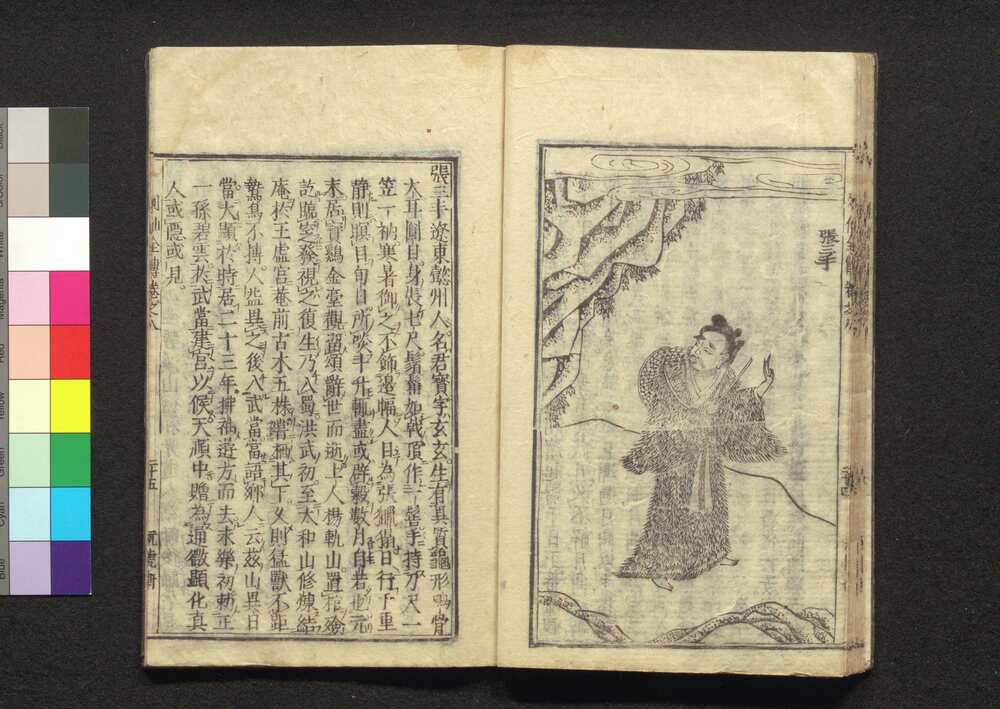 張三丰
張三丰遼東懿州人名君寶字玄玄生有異質龜形鶴骨
大耳圓目身長七尺鬚髯如戟頂作一髻手持刀尺一
笠一衲寒暑御之不飾邊幅人目為張邋遢日行千里
静則瞑目旬日所啖斗升輒盡或辟穀數月自若也元
末居寶鷄金臺觀留頌辭世而逝土人楊軌山置棺殮
訖臨窆發視之復生乃入蜀洪武初至太和山修煉結
庵於玉虛宮庵前古木五株嘗栖其下久則猛獸不距
鷙鳥不搏人益異之後入武當嘗語鄉人云茲山異日
當大顯於時居二十三年拂袖遊方而去永樂初勅正
一孫碧雲於武當建宮以候天順中贈為通微顯化真
人或隠或見
列仙全傳卷之八
二十五